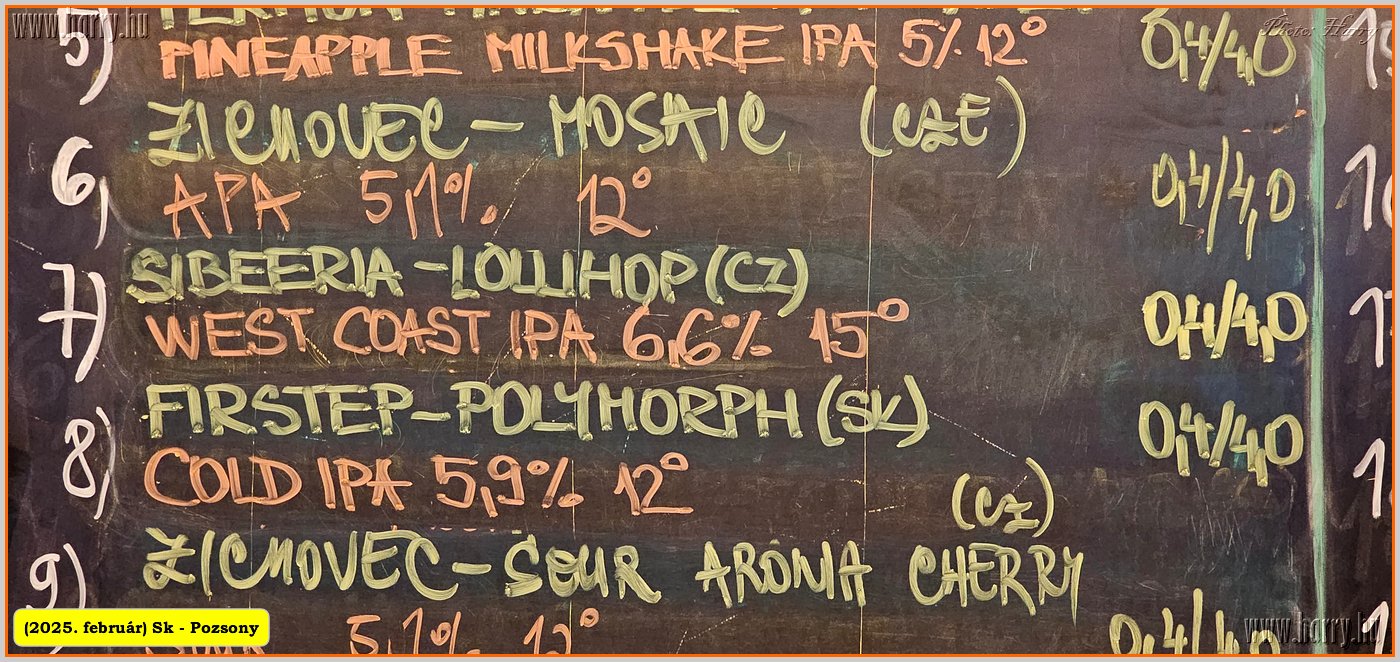 www.harry.hu
Photo: Harry
5) PINEAPPLE MILKSHAKE IPA 5% 12° 0,4/4,0
ZICHOVEC - MOSAIC (CZE)
6, APA 5,1% 12° 0,4/4,0
SIBEERIA - LOLLIHOP (CZ)
7) WEST COAST IPA 6,6% 15° 0,4/4,0
FIRSTEP - POLYMORPH (SK) 0,4/4,0
8) COLD IPA 5,9% 12°
(CZ)
ZICHOVEC - SOUR ARONIA CHERRY
9) 5,1% 12° 0,4/4,0
(2025. február) Sk - Pozsony
www.harry.hu